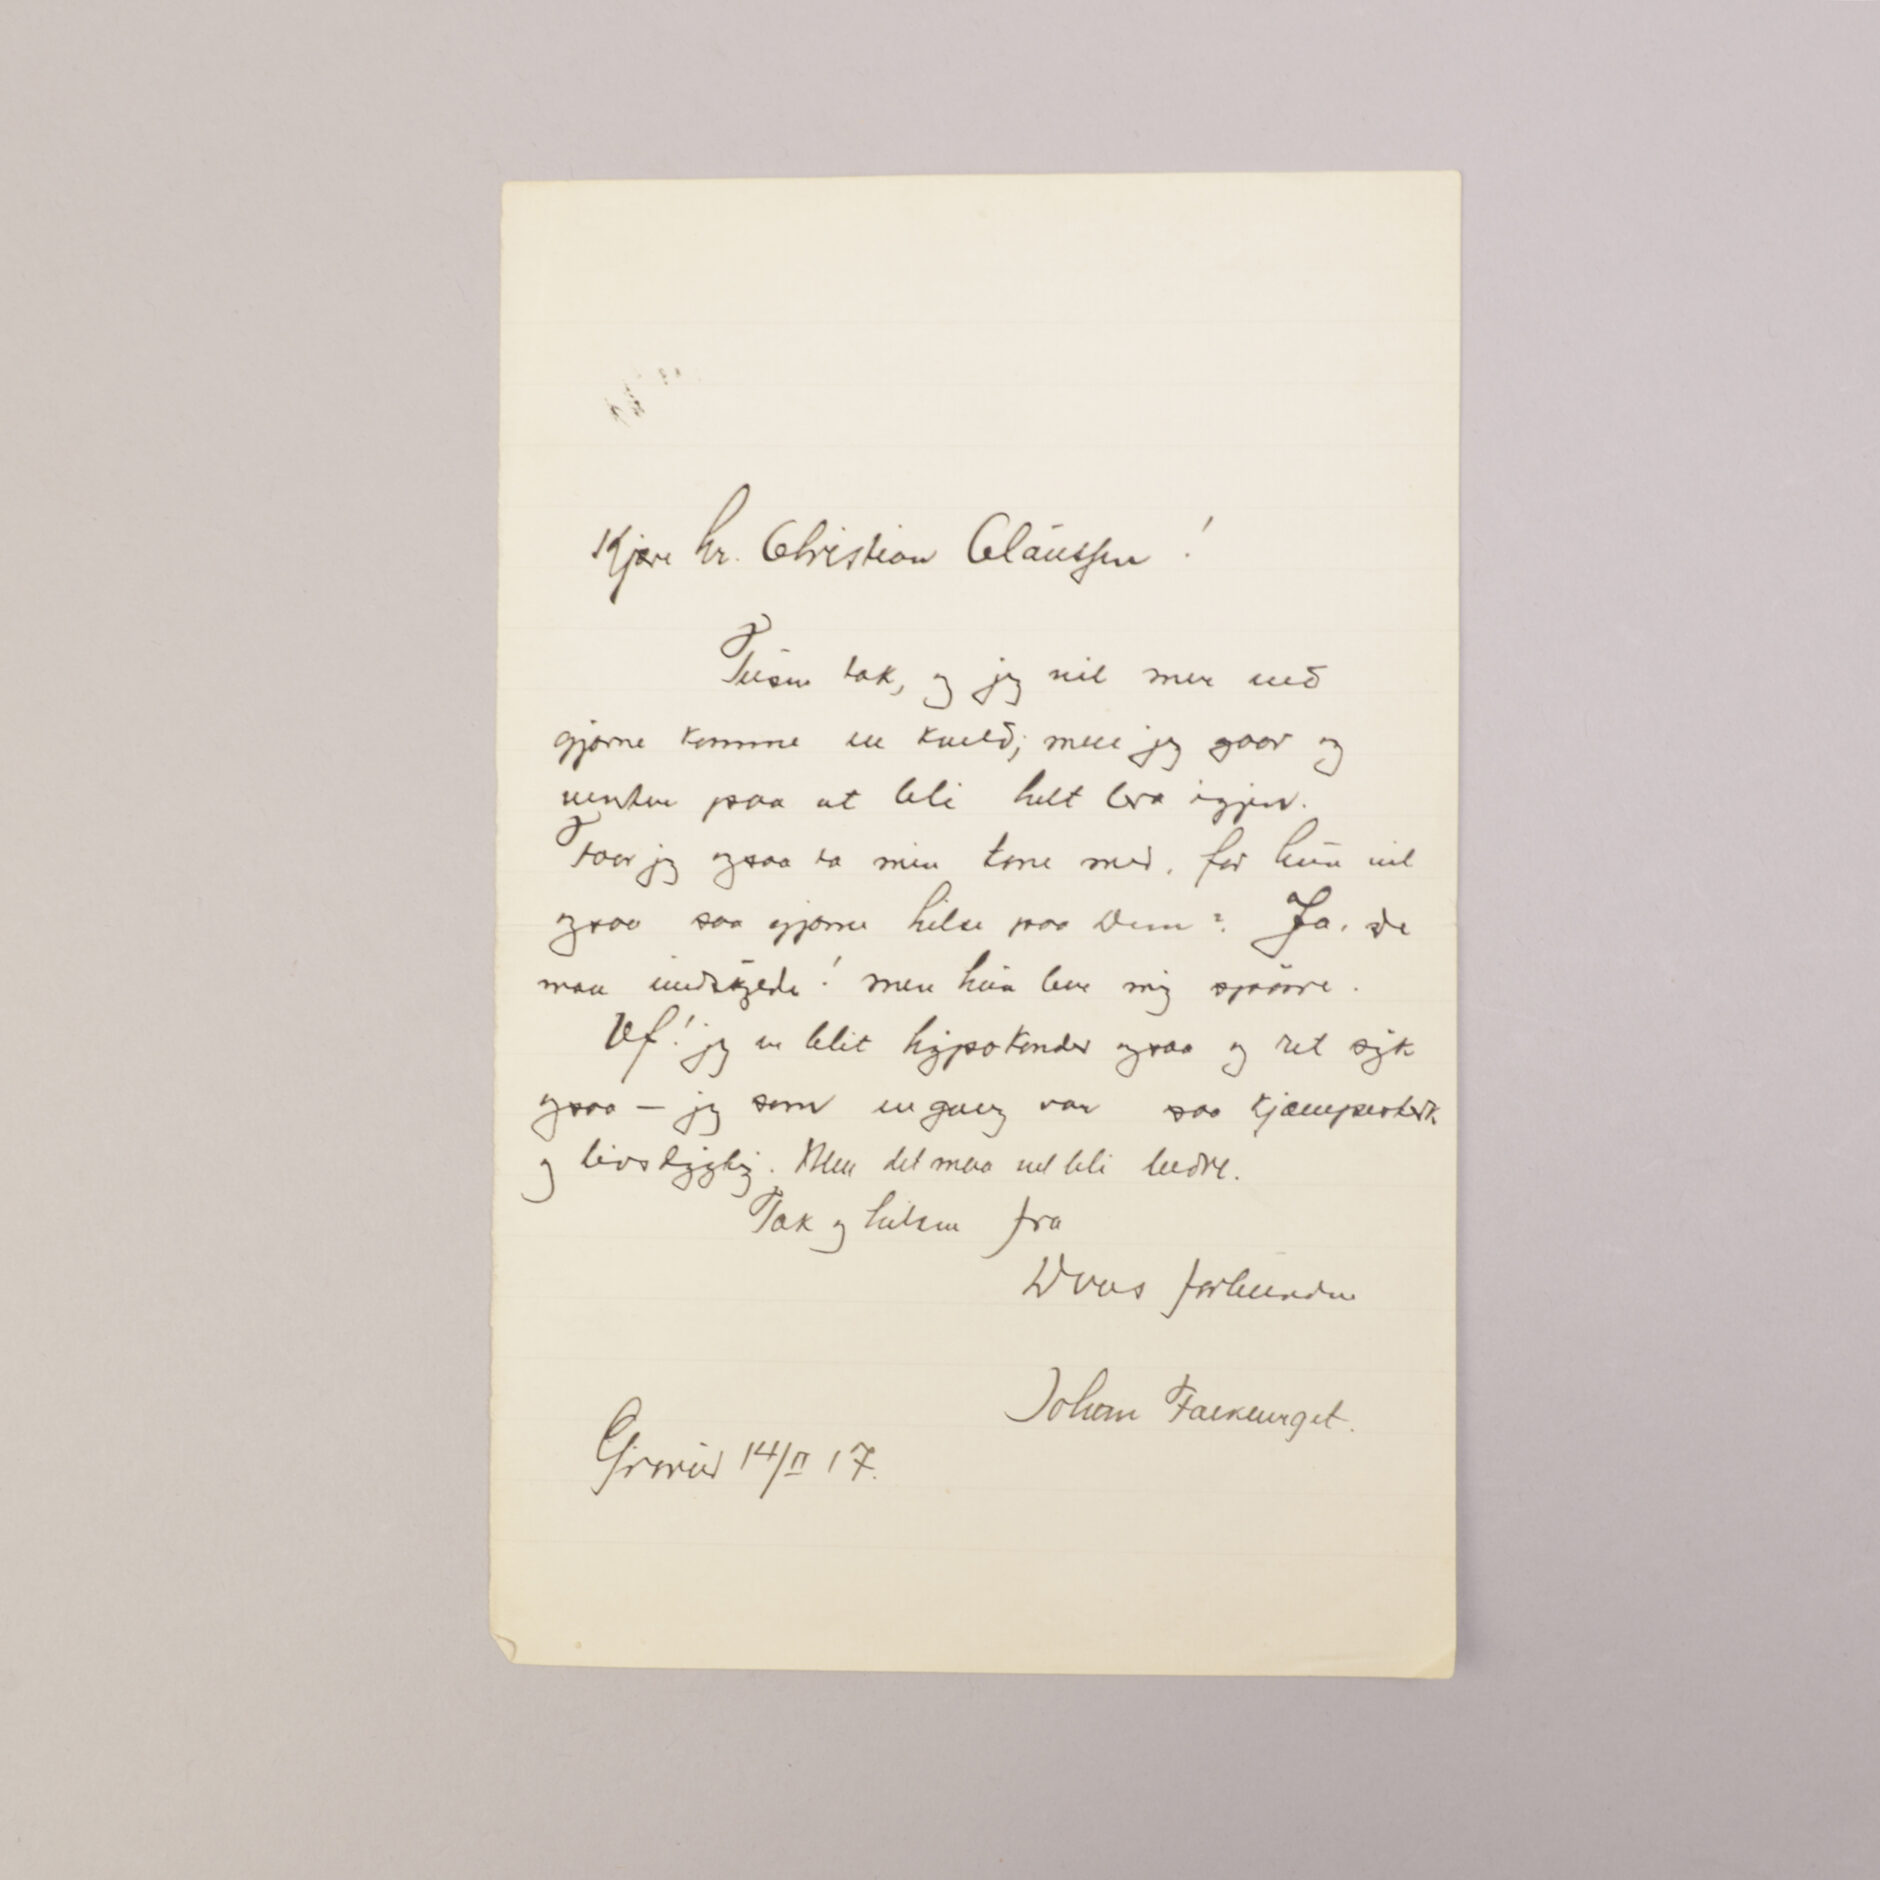 Kjære hr. Christian Claussen!
Tusen tak, og jeg vil mer end
gjerne komme en kveld; men jeg gaar og
venter paa at bli helt bra igjen.
Faar jeg ogsaa ta min kone med, for hun vil
ogsaa saa gjerne hilse paa Dem? Ja, De
maa undskylde! men hun ber mig spørre.
Uf! jeg er blit hypokonder ogsaa og ret syk
ogsaa — jeg som engang var saa kjæmpesterk
og livslystig. Men det maa vel bli bedre.
Tak og hilsen fra
Deres forbundne
Johan Falkberget.
Grorud 14/II 17.